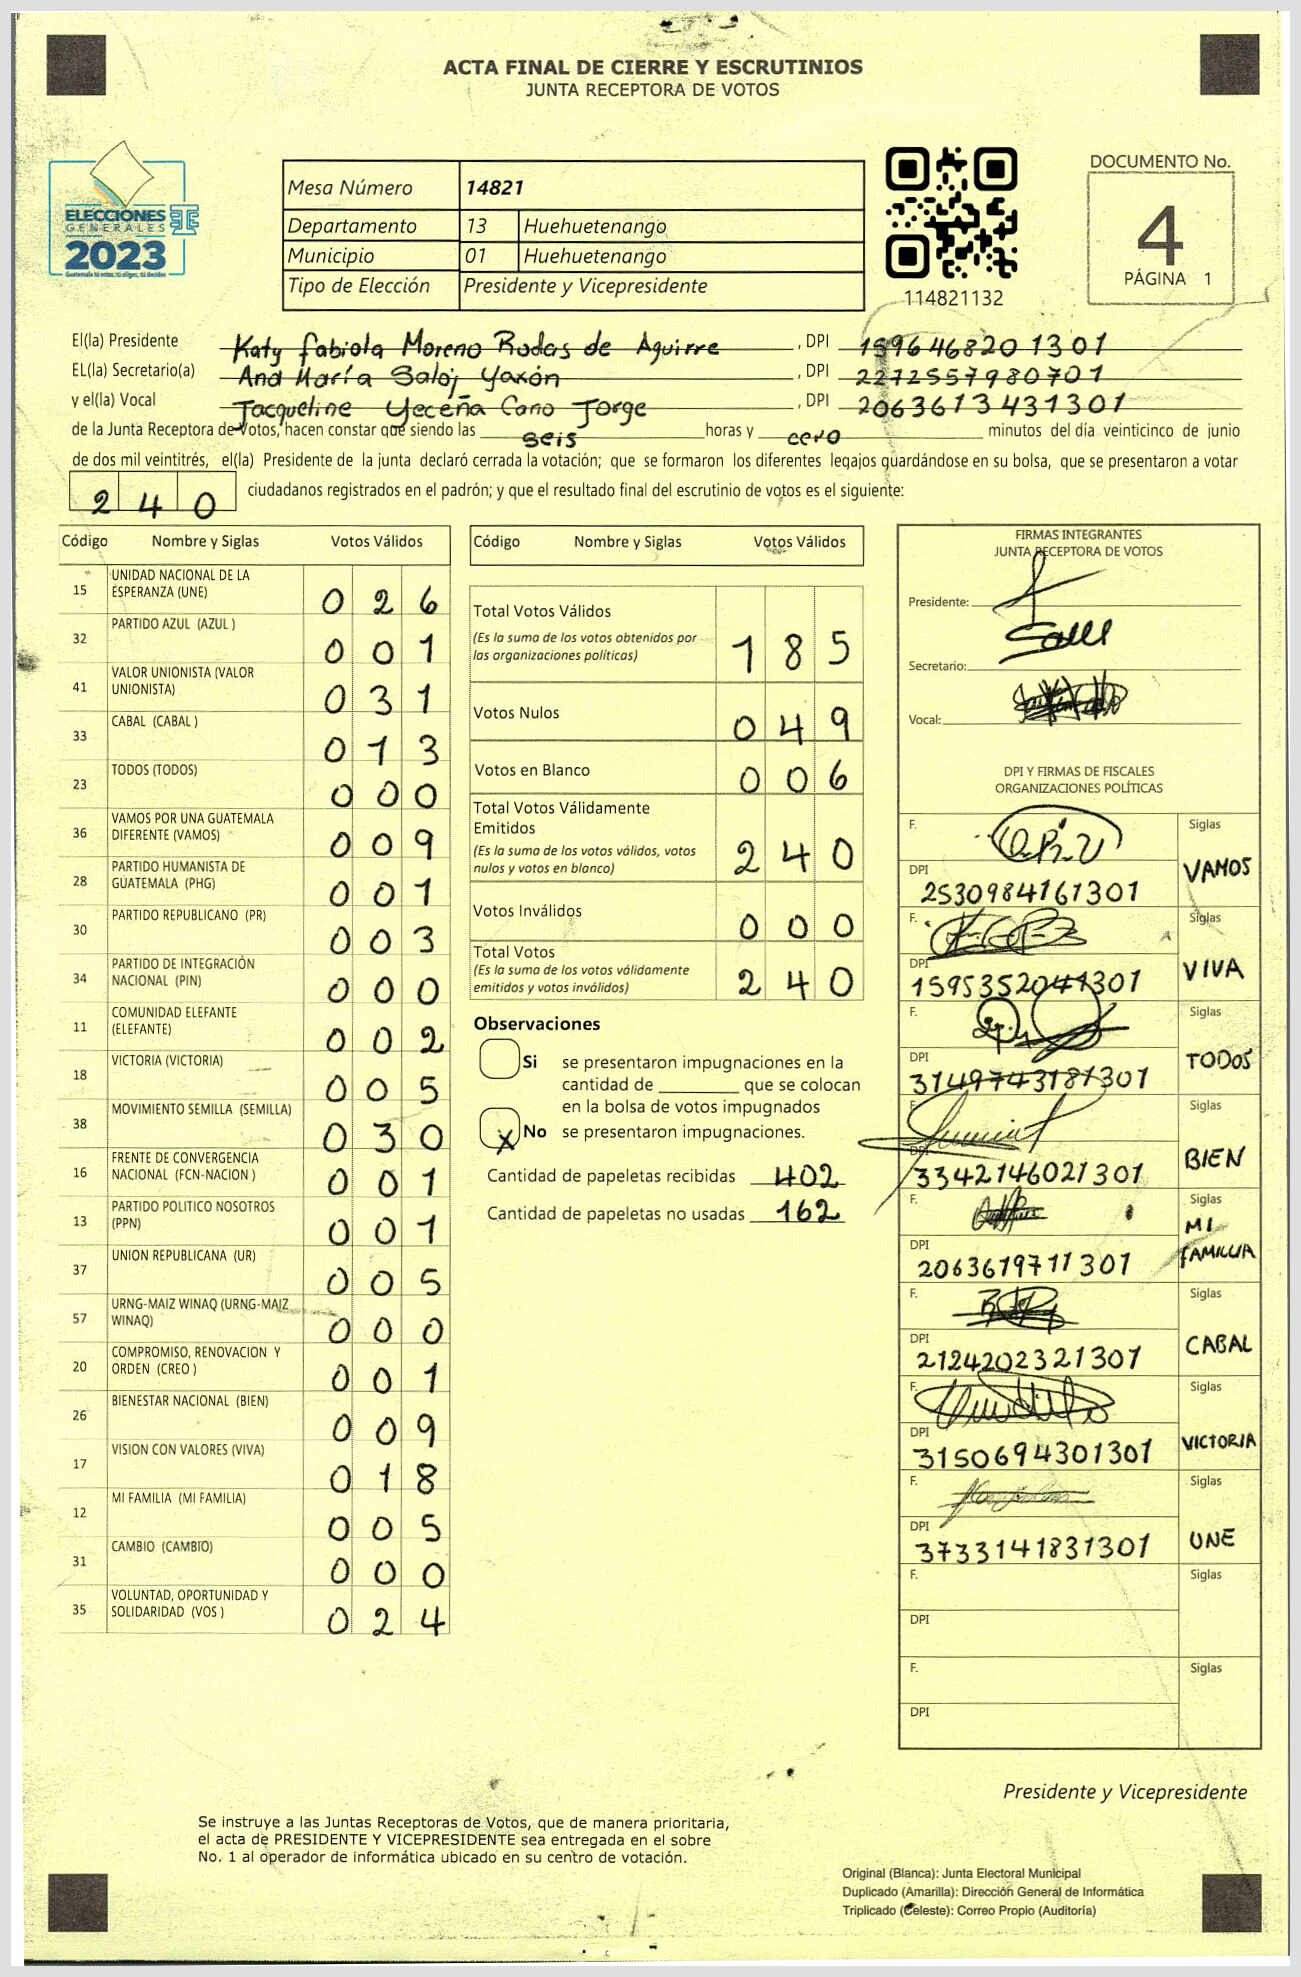 ACTA FINAL DE CIERRE Y ESCRUTINIOS
JUNTA RECEPTORA DE VOTOS
ELECCIONES
GENERALES
2023
Guatemala tú votas, tú eliges, tú decides
Mesa Número 14821
Departamento 13 Huehuetenango
Municipio 01 Huehuetenango
Tipo de Elección Presidente y Vicepresidente
114821132
DOCUMENTO No.
4
PÁGINA 1
El(la) Presidente Katy Fabiola Moreno Rodas de Aguirre , DPI 1596468201301
EL(la) Secretario(a) Ana María Saloj Yaxón , DPI 2272557980701
y el(la) Vocal Jacqueline Yeceña Cano Jorge , DPI 2063613431301
de la Junta Receptora de Votos, hacen constar que siendo las seis horas y cero minutos del día veinticinco de junio
de dos mil veintitrés, el(la) Presidente de la junta declaró cerrada la votación; que se formaron los diferentes legajos guardándose en su bolsa, que se presentaron a votar
240 ciudadanos registrados en el padrón; y que el resultado final del escrutinio de votos es el siguiente:
Código Nombre y Siglas Votos Válidos
15 UNIDAD NACIONAL DE LA ESPERANZA (UNE) 026
32 PARTIDO AZUL (AZUL ) 001
41 VALOR UNIONISTA (VALOR UNIONISTA) 031
33 CABAL (CABAL ) 013
23 TODOS (TODOS) 000
36 VAMOS POR UNA GUATEMALA DIFERENTE (VAMOS) 009
28 PARTIDO HUMANISTA DE GUATEMALA (PHG) 001
30 PARTIDO REPUBLICANO (PR) 003
34 PARTIDO DE INTEGRACIÓN NACIONAL (PIN) 000
11 COMUNIDAD ELEFANTE (ELEFANTE) 002
18 VICTORIA (VICTORIA) 005
38 MOVIMIENTO SEMILLA (SEMILLA) 030
16 FRENTE DE CONVERGENCIA NACIONAL (FCN-NACION ) 001
13 PARTIDO POLITICO NOSOTROS (PPN) 001
37 UNION REPUBLICANA (UR) 005
57 URNG-MAIZ WINAQ (URNG-MAIZ WINAQ) 000
20 COMPROMISO, RENOVACION Y ORDEN (CREO ) 001
26 BIENESTAR NACIONAL (BIEN) 009
17 VISION CON VALORES (VIVA) 018
12 MI FAMILIA (MI FAMILIA) 005
31 CAMBIO (CAMBIO) 000
35 VOLUNTAD, OPORTUNIDAD Y SOLIDARIDAD (VOS ) 024
Código Nombre y Siglas Votos Válidos
Total Votos Válidos 185
(Es la suma de los votos obtenidos por
las organizaciones políticas)
Votos Nulos 049
Votos en Blanco 006
Total Votos Válidamente
Emitidos 240
(Es la suma de los votos válidos, votos
nulos y votos en blanco)
Votos Inválidos 000
Total Votos 240
(Es la suma de los votos válidamente
emitidos y votos inválidos)
Observaciones
Si se presentaron impugnaciones en la
cantidad de ________ que se colocan
en la bolsa de votos impugnados
X No se presentaron impugnaciones.
Cantidad de papeletas recibidas 402
Cantidad de papeletas no usadas 162
FIRMAS INTEGRANTES
JUNTA RECEPTORA DE VOTOS
Presidente:
Secretario:
Vocal:
DPI Y FIRMAS DE FISCALES
ORGANIZACIONES POLÍTICAS
F. Siglas
DPI 2530984161301 VAMOS
F. Siglas
DPI 1595352041301 VIVA
F. Siglas
DPI 3149743181301 TODOS
F. Siglas
DPI 3342146021301 BIEN
F. Siglas
DPI 2063619711301 MI FAMILIA
F. Siglas
DPI 2124202321301 CABAL
F. Siglas
DPI 3150694301301 VICTORIA
F. Siglas
DPI 3733141831301 UNE
F. Siglas
DPI
F. Siglas
DPI
Presidente y Vicepresidente
Se instruye a las Juntas Receptoras de Votos, que de manera prioritaria,
el acta de PRESIDENTE Y VICEPRESIDENTE sea entregada en el sobre
No. 1 al operador de informática ubicado en su centro de votación.
Original (Blanca): Junta Electoral Municipal
Duplicado (Amarilla): Dirección General de Informática
Triplicado (Celeste): Correo Propio (Auditoría)